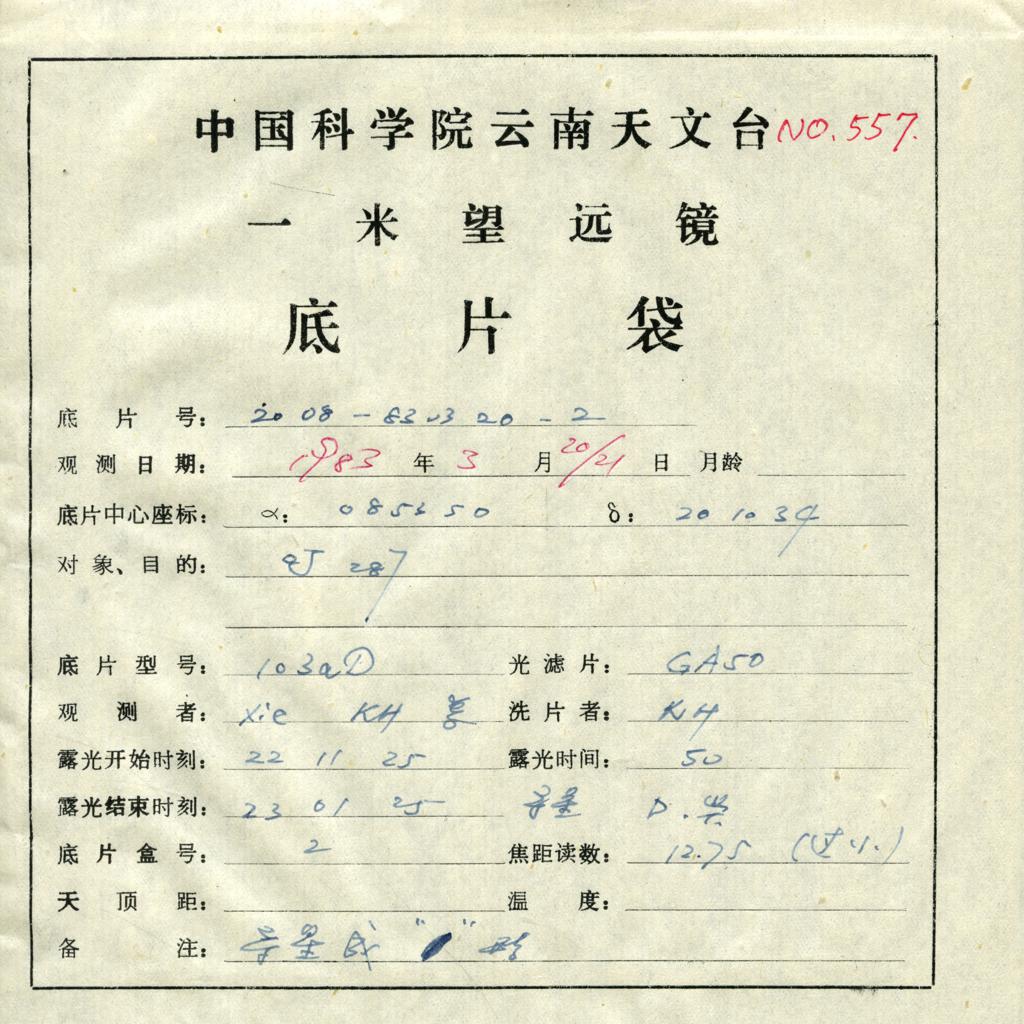 中国科学院云南天文台 NO.557.
一米望远镜
底片袋
底片号: 2008-830320-2
观测日期: 1983年3月20/21日 月龄
底片中心座标: α: 085350 δ: 201034
对象、目的: OJ 287
底片型号: 103aD 光滤片: GA50
观测者: Xie KH 洗片者: KH
露光开始时刻: 22 11 25 露光时间: 50
露光结束时刻: 23 01 25 导星 D.
底片盒号: 2 焦距读数: 12.75 (过小)
天顶距: 温度:
备注: 导星成 " " 形